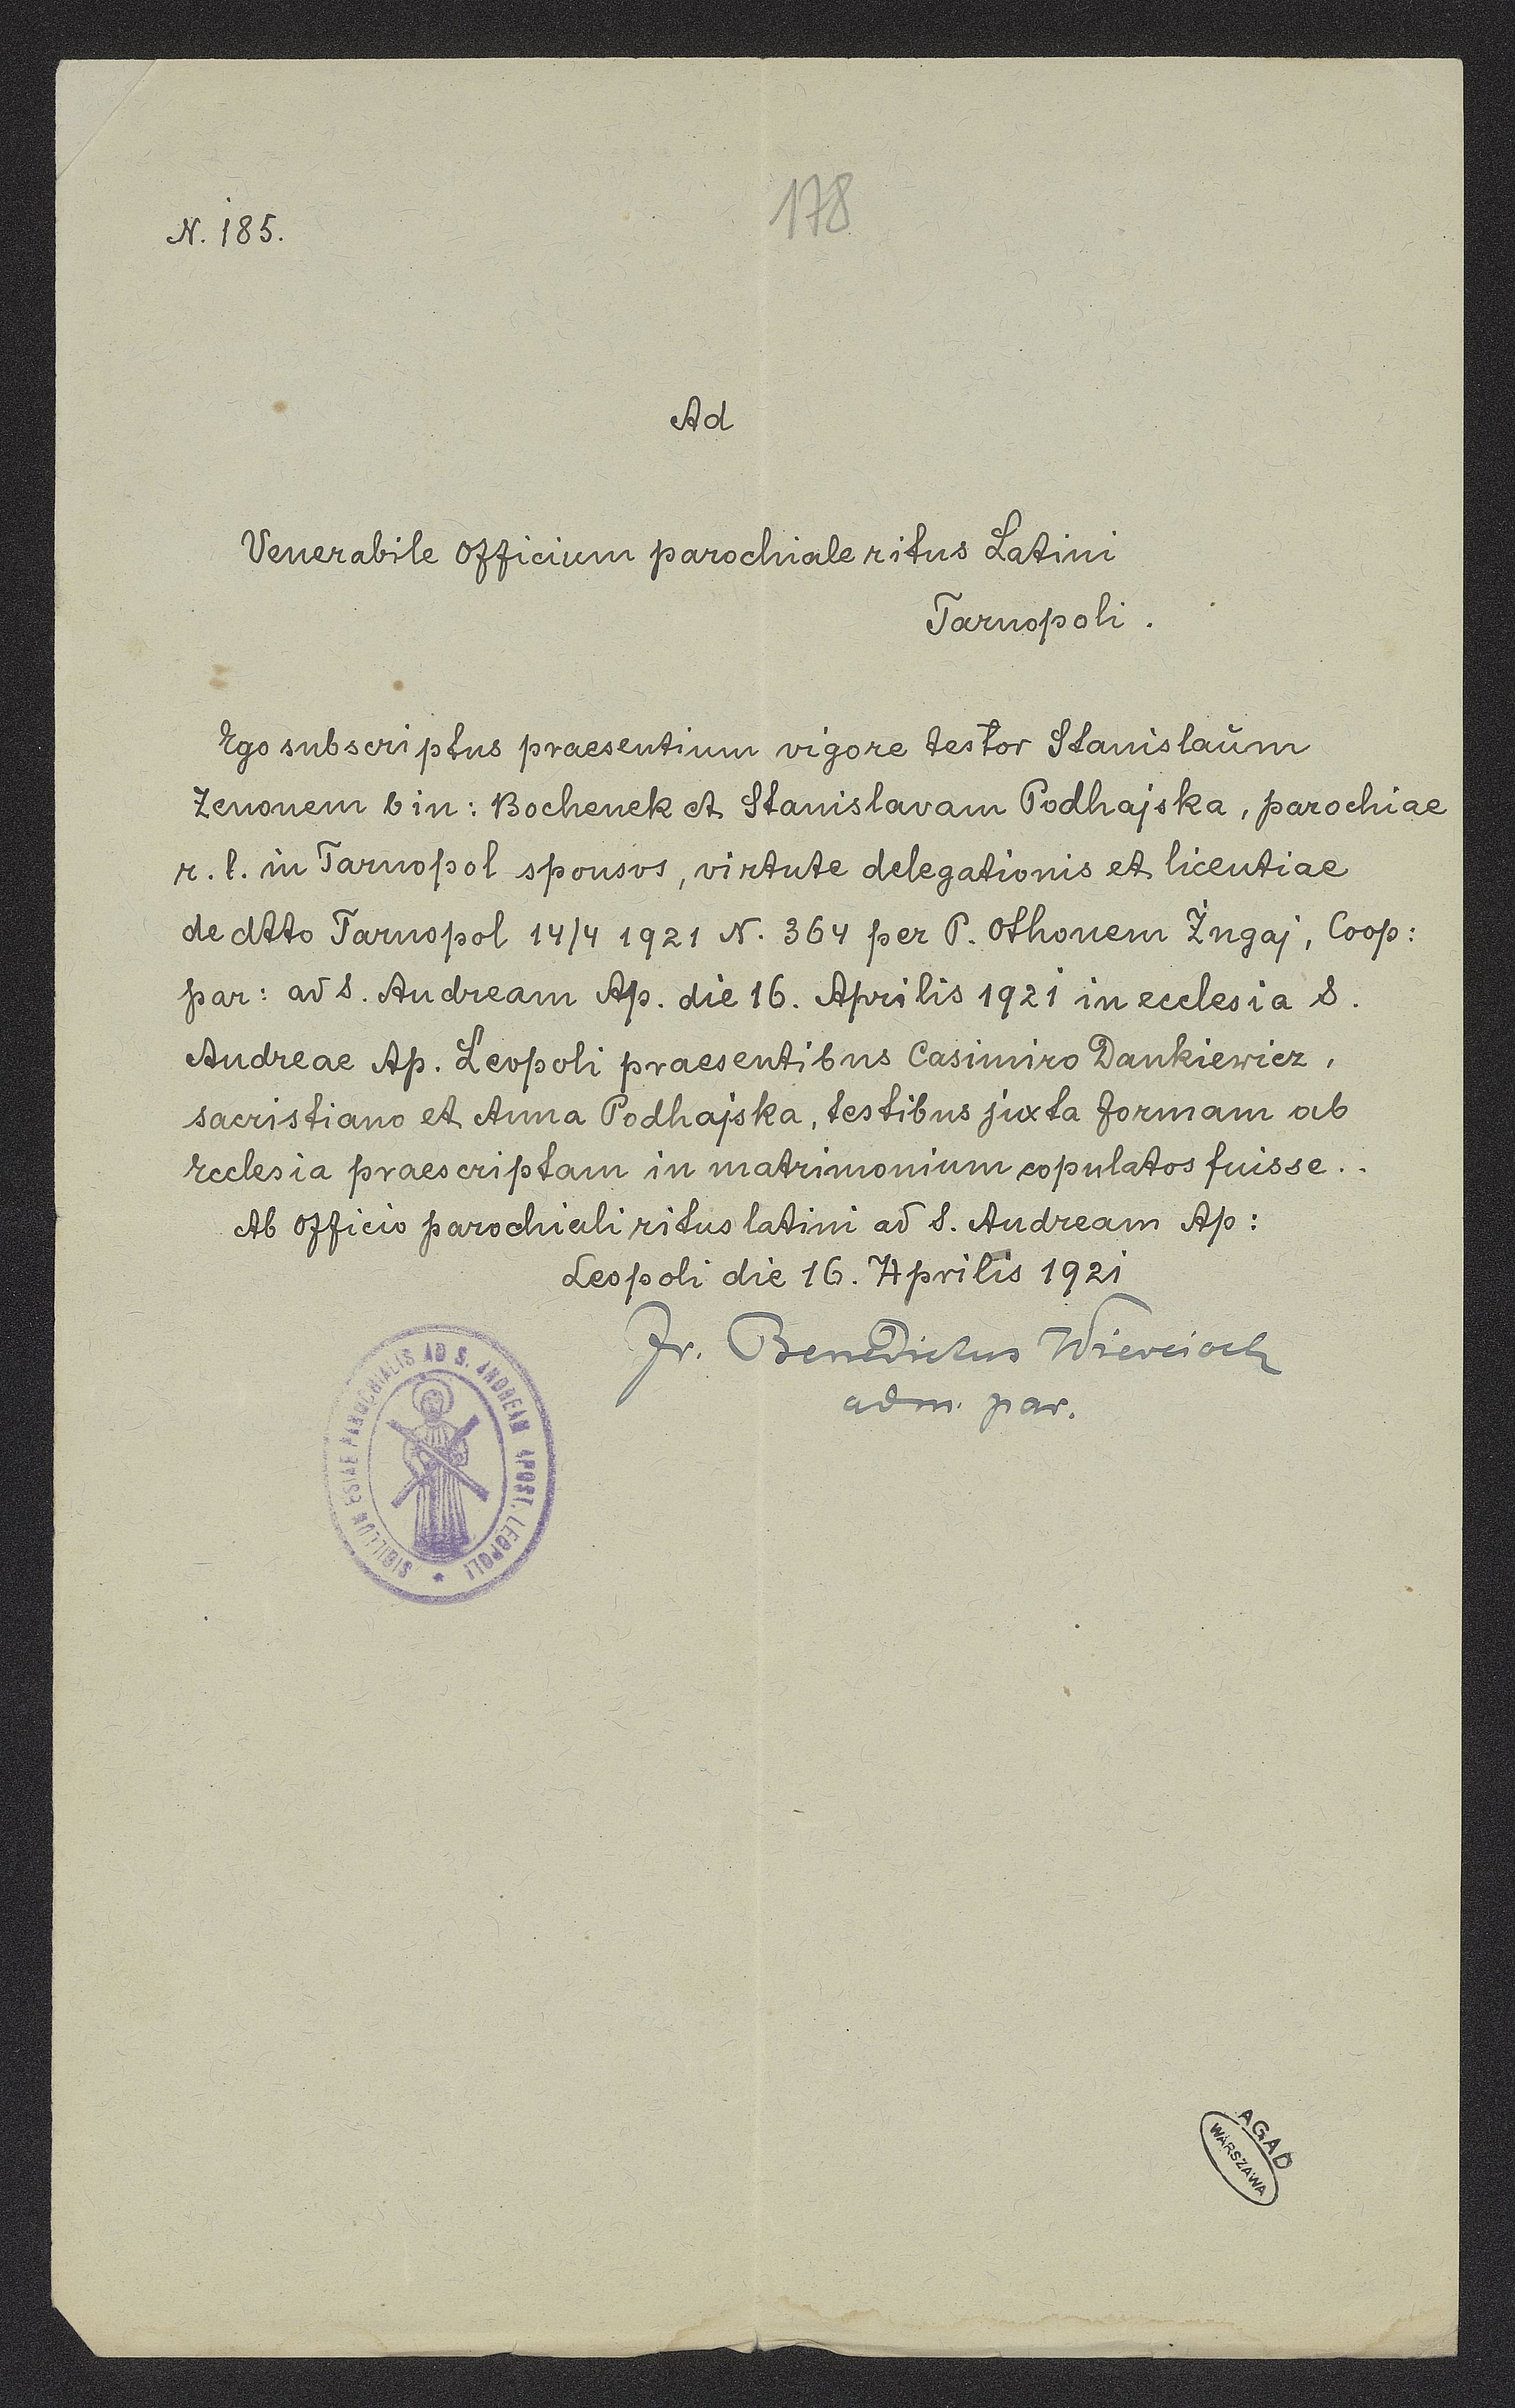 178
N. 185.
Ad
Venerabile Officium parochiale ritus Latini
Tarnopoli.
Ego subscriptus praesentium vigore testor Stanislaŭm
Zenonem bin: Bochenek et Stanislavam Podhajska, parochiae
r. l. in Tarnopol sponsos, virtute delegationis et licentiae
de dtto Tarnopol 14/4 1921 N. 364 per P. Othonem Żugaj, Coop:
par: ad S. Andream Ap. die 16. Aprilis 1921 in ecclesia S.
Andreae Ap. Leopoli praesentibus Casimiro Dankiewicz,
sacristiano et Anna Podhajska, testibus juxta formam ab
Ecclesia praescriptam in matrimonium copulatos fuisse..
Ab Officio parochiali ritus latini ad S. Andream Ap:
Leopoli die 16. Aprilis 1921
Fr. Benedictus Wiercioch
adm. par.
SIGILLUM ECCLESIAE PAROCHIALIS AD S. ANDREAM APOST. LEOPOLI
AGAD
WARSZAWA